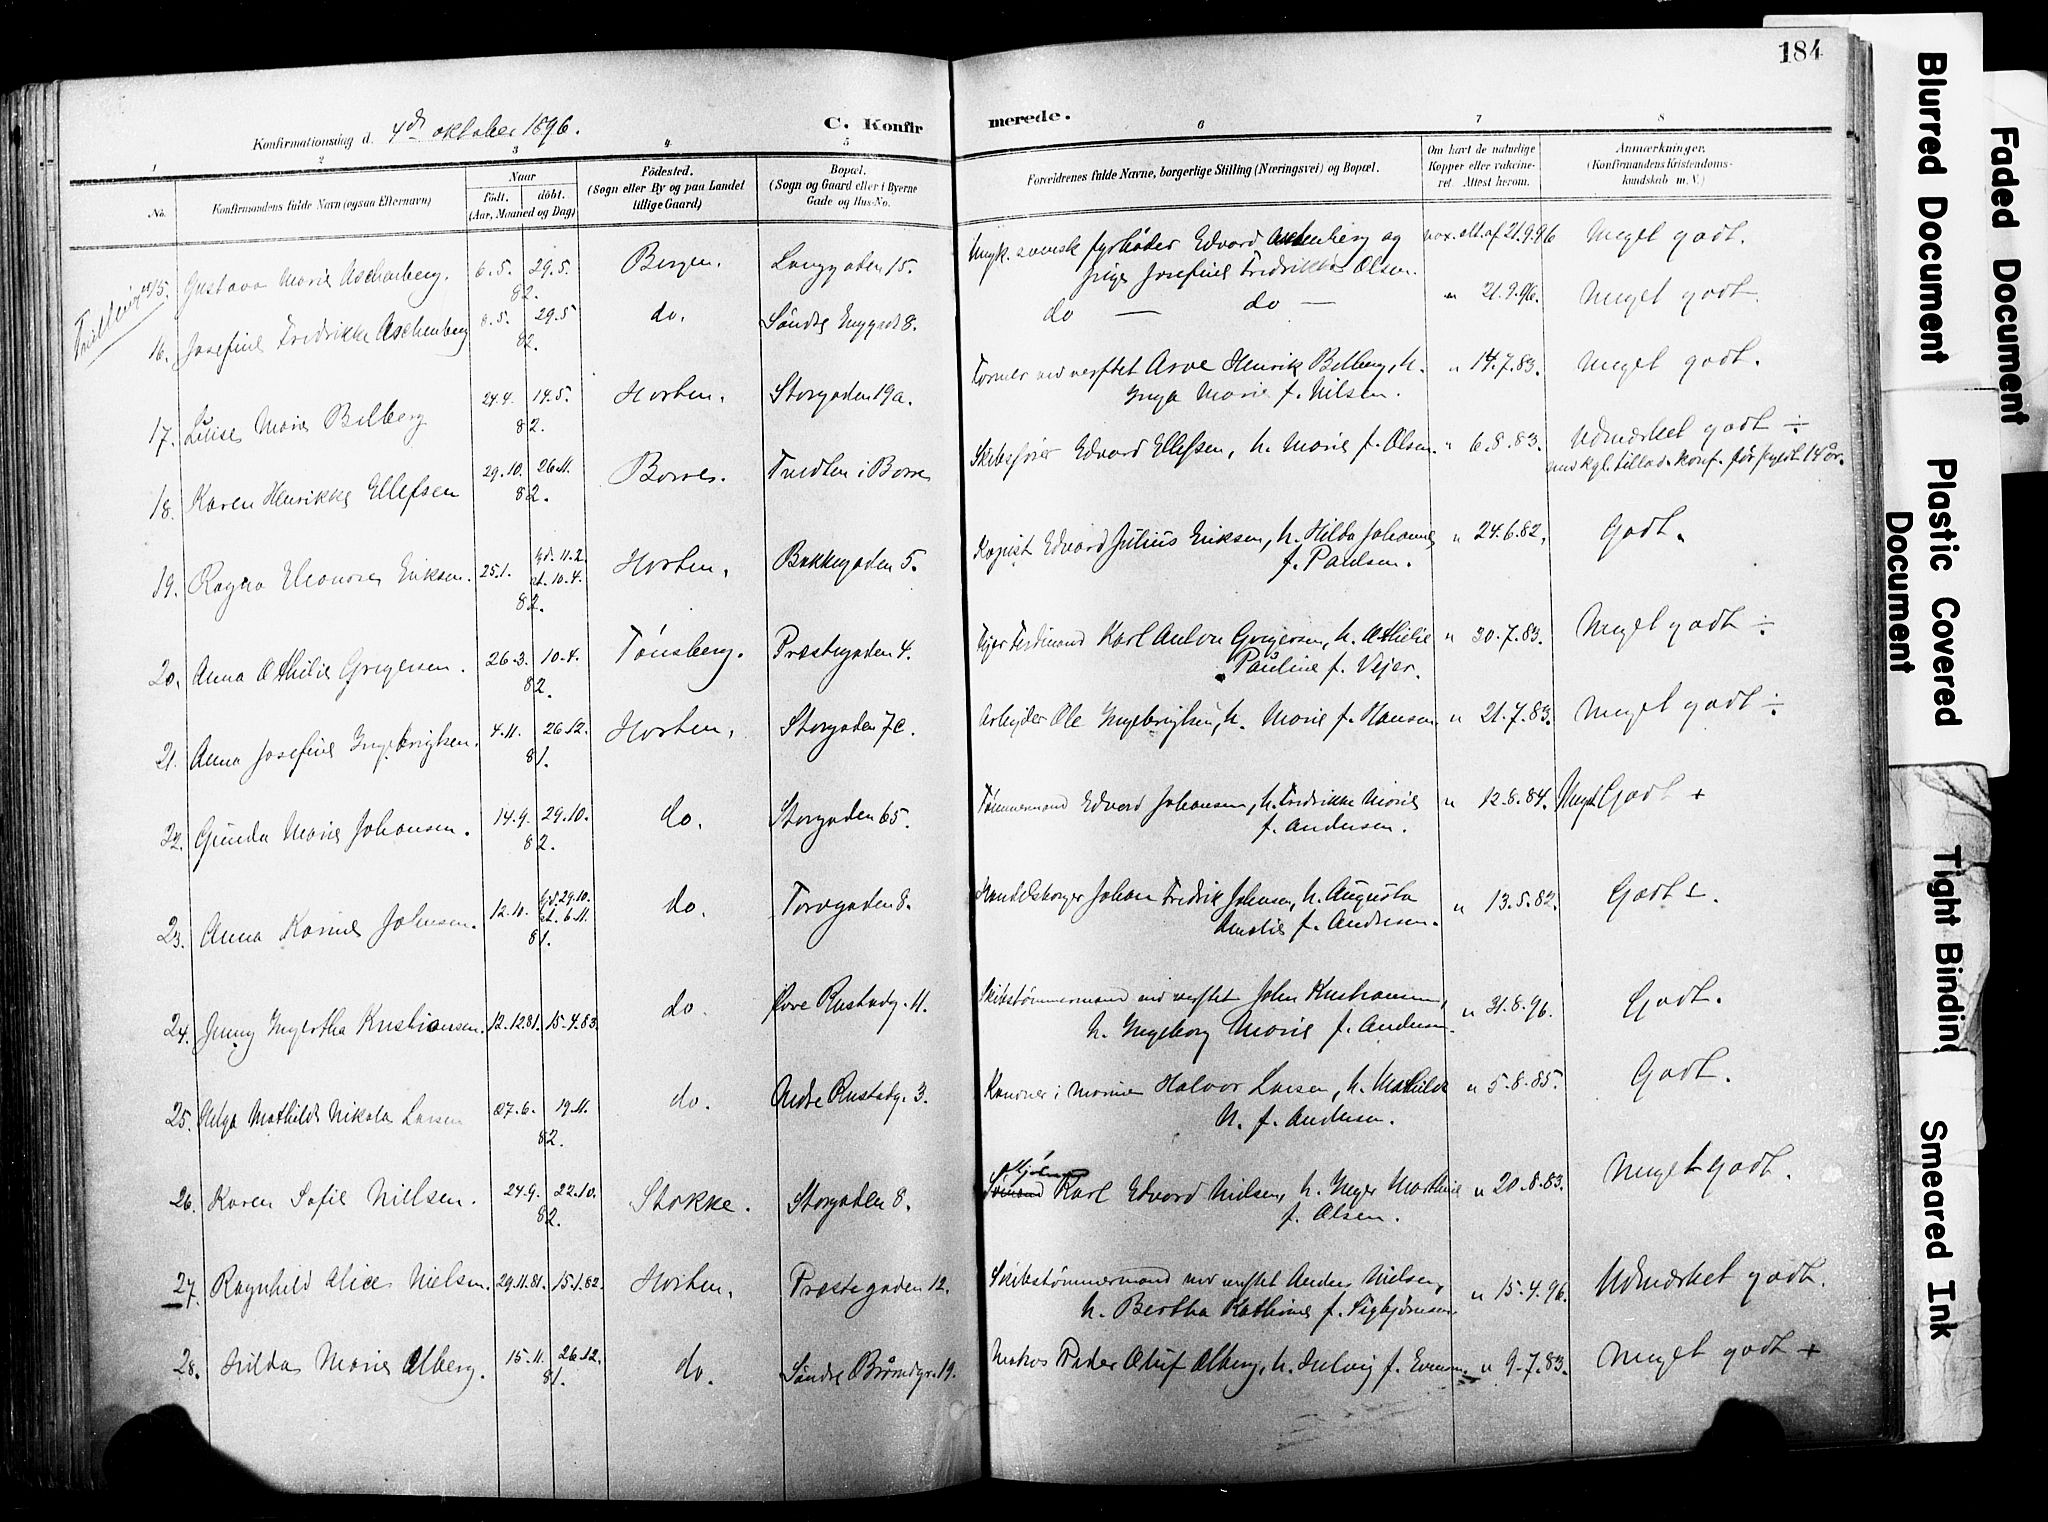 184
Konfirmationsdag d. 4de oktober 1896.
C. Konfirmerede.
1 2 3 4 5 6 7 8
No.
Konfirmandens fulde Navn (ogsaa Efternavn)
Naar
født. døbt.
(Aar, Maaned og Dag)
Fødested.
(Sogn eller By og paa Landet
tillige Gaard)
Bopæl.
(Sogn og Gaard eller i Byerne
Gade og Hus-No.
Forældrenes fulde Navne, borgerlige Stilling (Næringsvei) og Bopæl.
Om havt de naturlige
Kopper eller vakcine-
ret. Attest herom.
Anmærkninger.
(Konfirmandens Kristendoms-
kundskab m. V.)
15. Gustava Marie Aschenberg. 6.5. 29.5. 82. Bergen. Langgaden 15. svensk fyrbøder Edvard Aschenberg og
Josefine Fredrikke Olsen. vax. att. af 21.9.96 Meget godt.
16. Josefine Fredrikke Aschenberg 8.5. 29.5 82. do. Søndre Enggad 8. do — do — " 21.9.96. Meget godt.
17. Luise Marie Bilberg 24.4. 14.5. 82. Horten. Storgaden 19a. Former ved verftet Arve Henrik Bilberg, h.
Inga Marie f. Nilsen. " 14.7.83. Meget godt.
18. Karen Henrikke Ellefsen 29.10. 26.11. 82. Borre. i Borre Skibsfører Edvard Ellefsen, h. Marie f. Olsen. " 6.8.83. Udmærket godt ÷
med kgl. tillad. konf. før fyldt 14 år.
19. Ragna Eleonore Eriksen. 25.1. hd. 11.2. st. 10.4. 82. Horten. Bakkegaden 5. Kopist Edvard Julius Eriksen, h. Hilda Johanne
f. Paulsen. " 24.6.82. Godt.
20. Anna Othilie Gregersen. 26.3. 10.4. 82. Tønsberg. Præstegaden 4. Ferdinand Karl Anton Gregersen, h. Othilie
Pauline f. Vejer. " 30.7.83. Meget godt ÷
21. Anna Josefine Ingebrigtsen. 4.11. 26.12. 81. Horten. Storgaden 7c. Arbeider Ole Ingebrigtsen, h. Marie f. Hansen " 21.7.83. Meget godt ÷
22. Gunda Marie Johansen. 14.9. 29.10. 82. do. Storgaden 65. Tømmermand Edvard Johansen, h. Fredrikke Marie
f. Andersen. " 12.8.84. Meget Godt +
23. Anna Karine Johnsen. 12.10. hd. 29.10. st. 6.11. 81. do. Torvgaden 8. Handelsborger Johan Fredrik Johnsen, h. Augusta
Amalie f. Andersen. " 13.5.82. Godt ÷.
24. Jenny Ingertha Kristiansen. 12.12.81. 15.4.83. do. Øvre Rustadg. 11. Skibstømmermand ved verftet John Kristiansen,
h. Ingeborg Marie f. Andersen. " 31.8.96. Godt.
25. Helga Mathilde Nikola Larsen 27.6. 19.11. 82. do. Nedre Rustadg. 3. Kanoner i marinen Halvor Larsen, h. Mathilde
N. f. Andersen. " 5.8.85. Godt.
26. Karen Sofie Nielsen. 24.9. 22.10. 82. Stokke. Storgaden 8. Karl Edvard Nielsen, h. Inger Mathilde
f. Olsen. " 20.8.83. Meget godt.
27. Ragnhild Alice Nielsen. 29.11.81. 15.1.82. Horten. Præstegaden 12. Skibstømmermand ved verftet Anders Nielsen,
h. Bertha Kathrine f. Sigbjørnsen " 15.4.96. Udmærket godt.
28. Hilda Marie Olberg. 15.11. 26.12. 81. do. Søndre Brårudgt. 19. Matros Peder Oluf Olberg, h. Hedvig f. Evensen. " 9.7.83. Meget godt +
Faded Document
Blurred Document
Plastic Covered
Document
Tight Binding
Smeared Ink